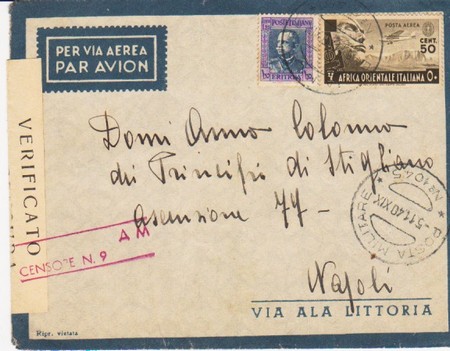 PER VIA AEREA
PAR AVION
POSTE ITALIANE
ERITREA
POSTA AEREA
CENT.
50
AFRICA ORIENTALE ITALIANA
Domi Anno Colonno
dei Principi di Stigliano
Ascensione 77 -
Napoli
VERIFICATO
A M
CENSORE N. 9
* POSTA MILITARE *
Nº 104
-5.11.40 XIX
VIA ALA LITTORIA
Ripr. vietata